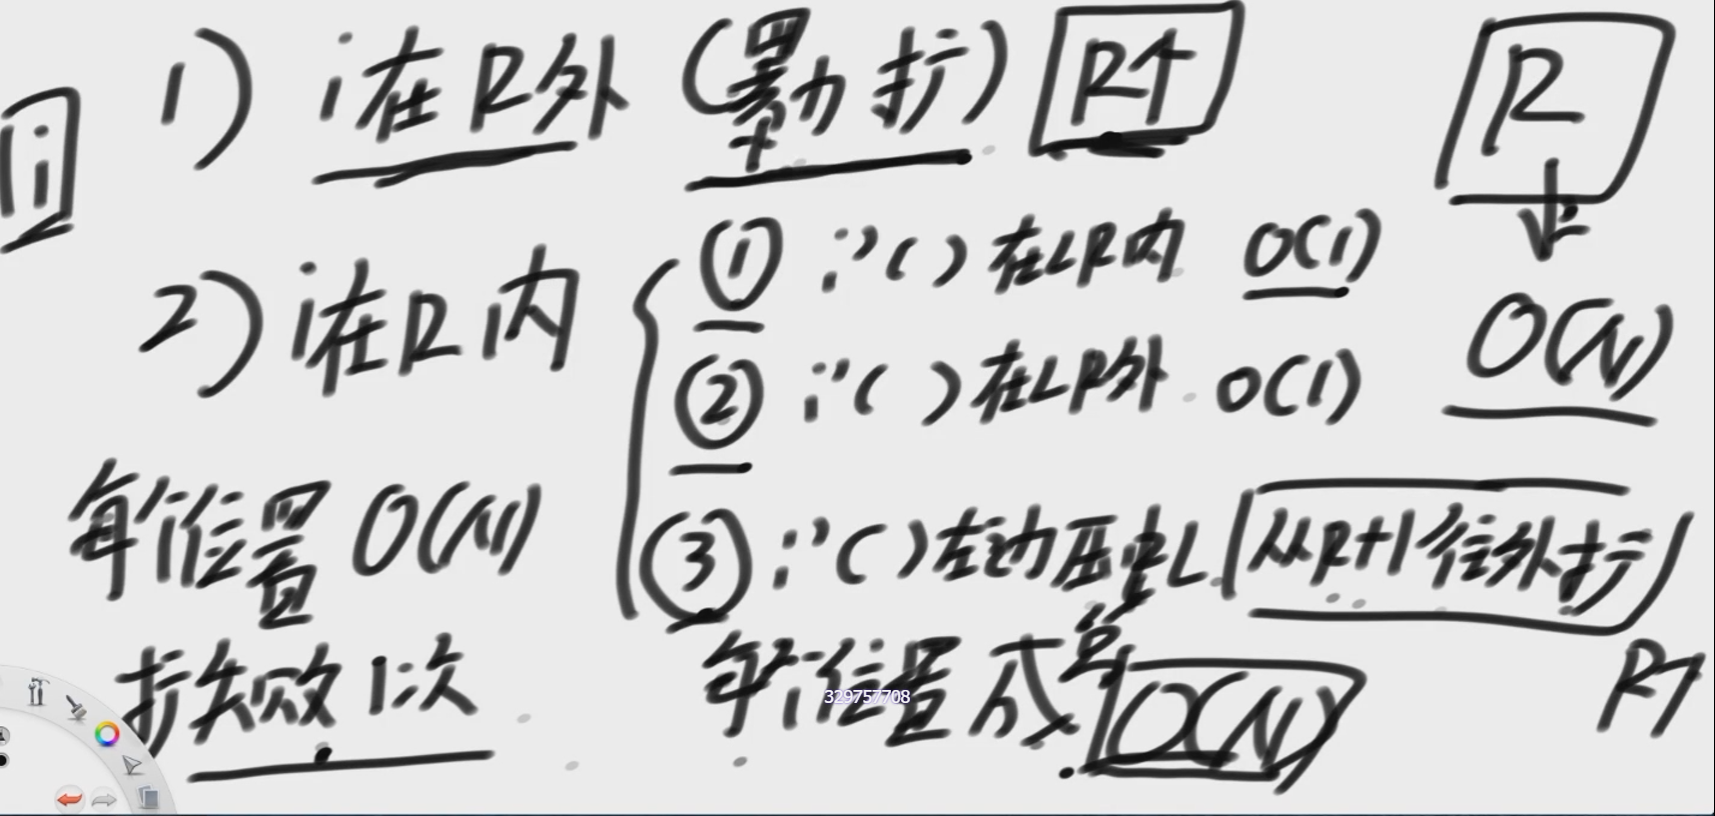 i
1) i在R外 (暴力扩) R↑ R
2) i在R内
① i'( )在LR内 O(1)
② i'( )在LR外 O(1)
O(N)
③ i'( )左边压中L 从R+1往外扩
R↑
每个位置 O(N)
扩失败1次
每个位置 成本 O(N)
329757708